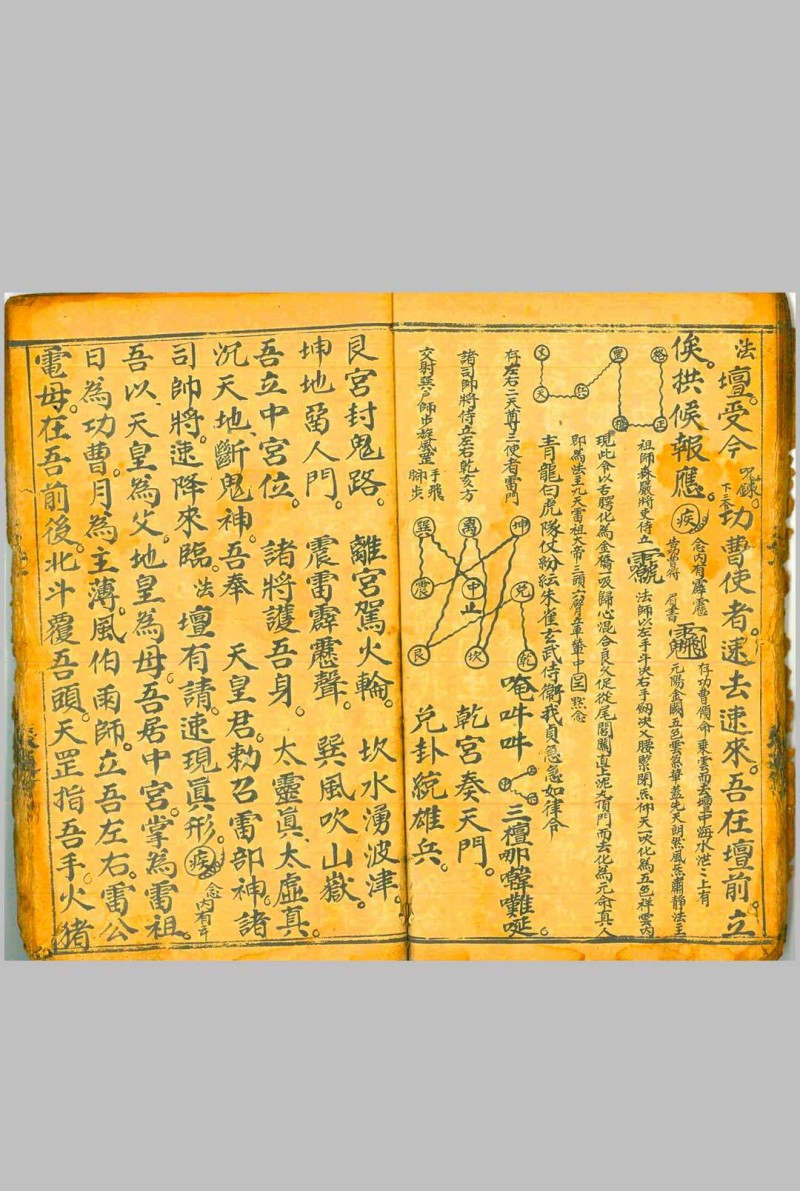 法壇受令 咒錄下三叁 功曹使者。速去速來。吾在壇前立
俟。拱候報應。疾 念內有霹靂
存功曹領命乘雲而去壇中海水泄〻上有
元陽金闕五色雲氣華蓋先天朗然風炁肅静法主
祖師森嚴將吏侍立
法師以左手斗决右手劒决叉腰緊閉炁仰天一吸化為五色祥雲内
現此令以舌腭化為金橋一吸歸心混合良久從尾閭關直上泥丸頂門而去化為元命真人
即為法主九天雷祖大帝三頭六臂五車螢中囯 黙念
青龍白虎隊仗紛紜朱雀玄武侍衛我貞急急如律令
存左右二天尊三使者雷門
唵吽吽 三檀哪韓難唌。
諸司帥將侍立左右乾亥方
乾宮奏天門。
交射巽户師步旋風罡 手飛脚步
兌卦統雄兵。
巽 離 坤
震 中 止 兌
艮 坎 乾
艮宮封鬼路。 離宮駕火輪。 坎水湧波津。
坤地畱人門。 震雷霹靂聲。 巽風吹山嶽。
吾立中宮位。 諸將護吾身。 太靈真太虛真。
沉天地斷鬼神。吾奉 天皇君。勅召雷部神。諸
司帥將。速降來臨。法壇有請。速現真形。疾 念内有云
吾以天皇為父。地皇為母。吾居中宮。掌為雷祖。
日為功曹。月為主薄。風伯雨師。立吾左右。雷公
電母。在吾前後。北斗覆吾頭。天罡指吾手。火猪